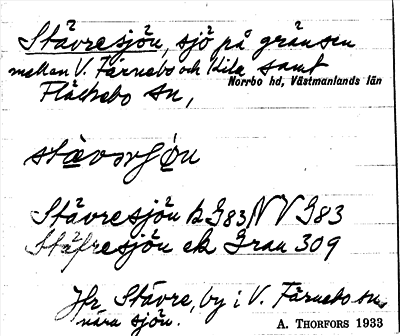 Stävresjön, sjö på gränsen
mellan V. Färnebo och Kila samt
Norrbo hd, Västmanlands län
Fläckebo sn,
stävərʃön
Stävresjön k G83 NV G83
Stäfresjön ek Gran 309
Jfr Stävre, by i V. Färnebo sn,
nära sjön.
A. THORFORS 1933